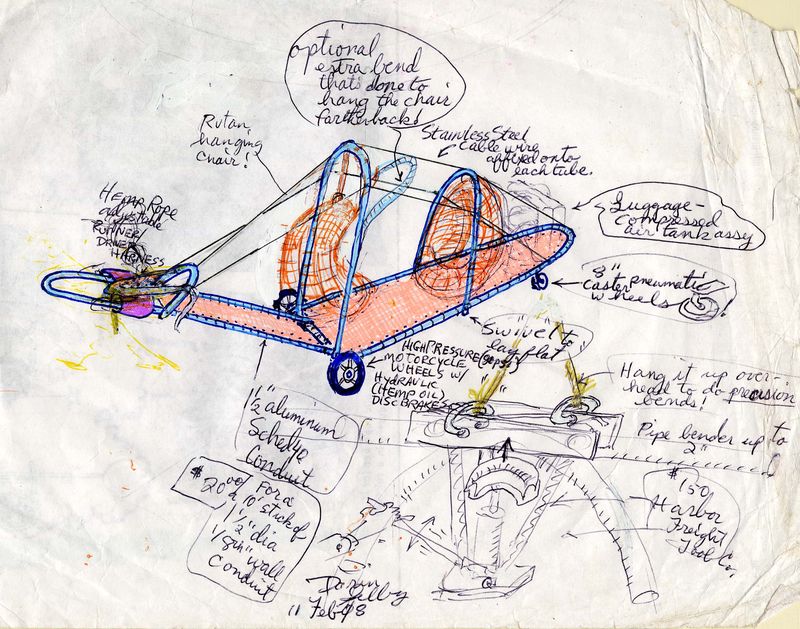 optional
extra bend
thats done to
hang the chair
farther back!
Rutan
hanging
chair!
Stainless Steel
cable wire
affixed onto
each tube.
HEMP ROPE
adjustable
RUNNER
DRIVER
HARNESS
Luggage-
compressed
air tank assy
8"
caster pneumatic
wheels
!
"Swivel to
lay flat"
HIGH PRESSURE
MOTORCYCLE
WHEELS W/
HYDRAULIC
(HEMP OIL)
DISC BRAKES
Hang it up over-
head to do precision
bends!
Pipe bender up to
2"
1 1/2" aluminum
Sched 40
Conduit
$20.00 For a
10' stick of
1 1/2" dia
1/8th" wall
Conduit
$150
Harbor
Freight
Tool Co.
11 Feb 98